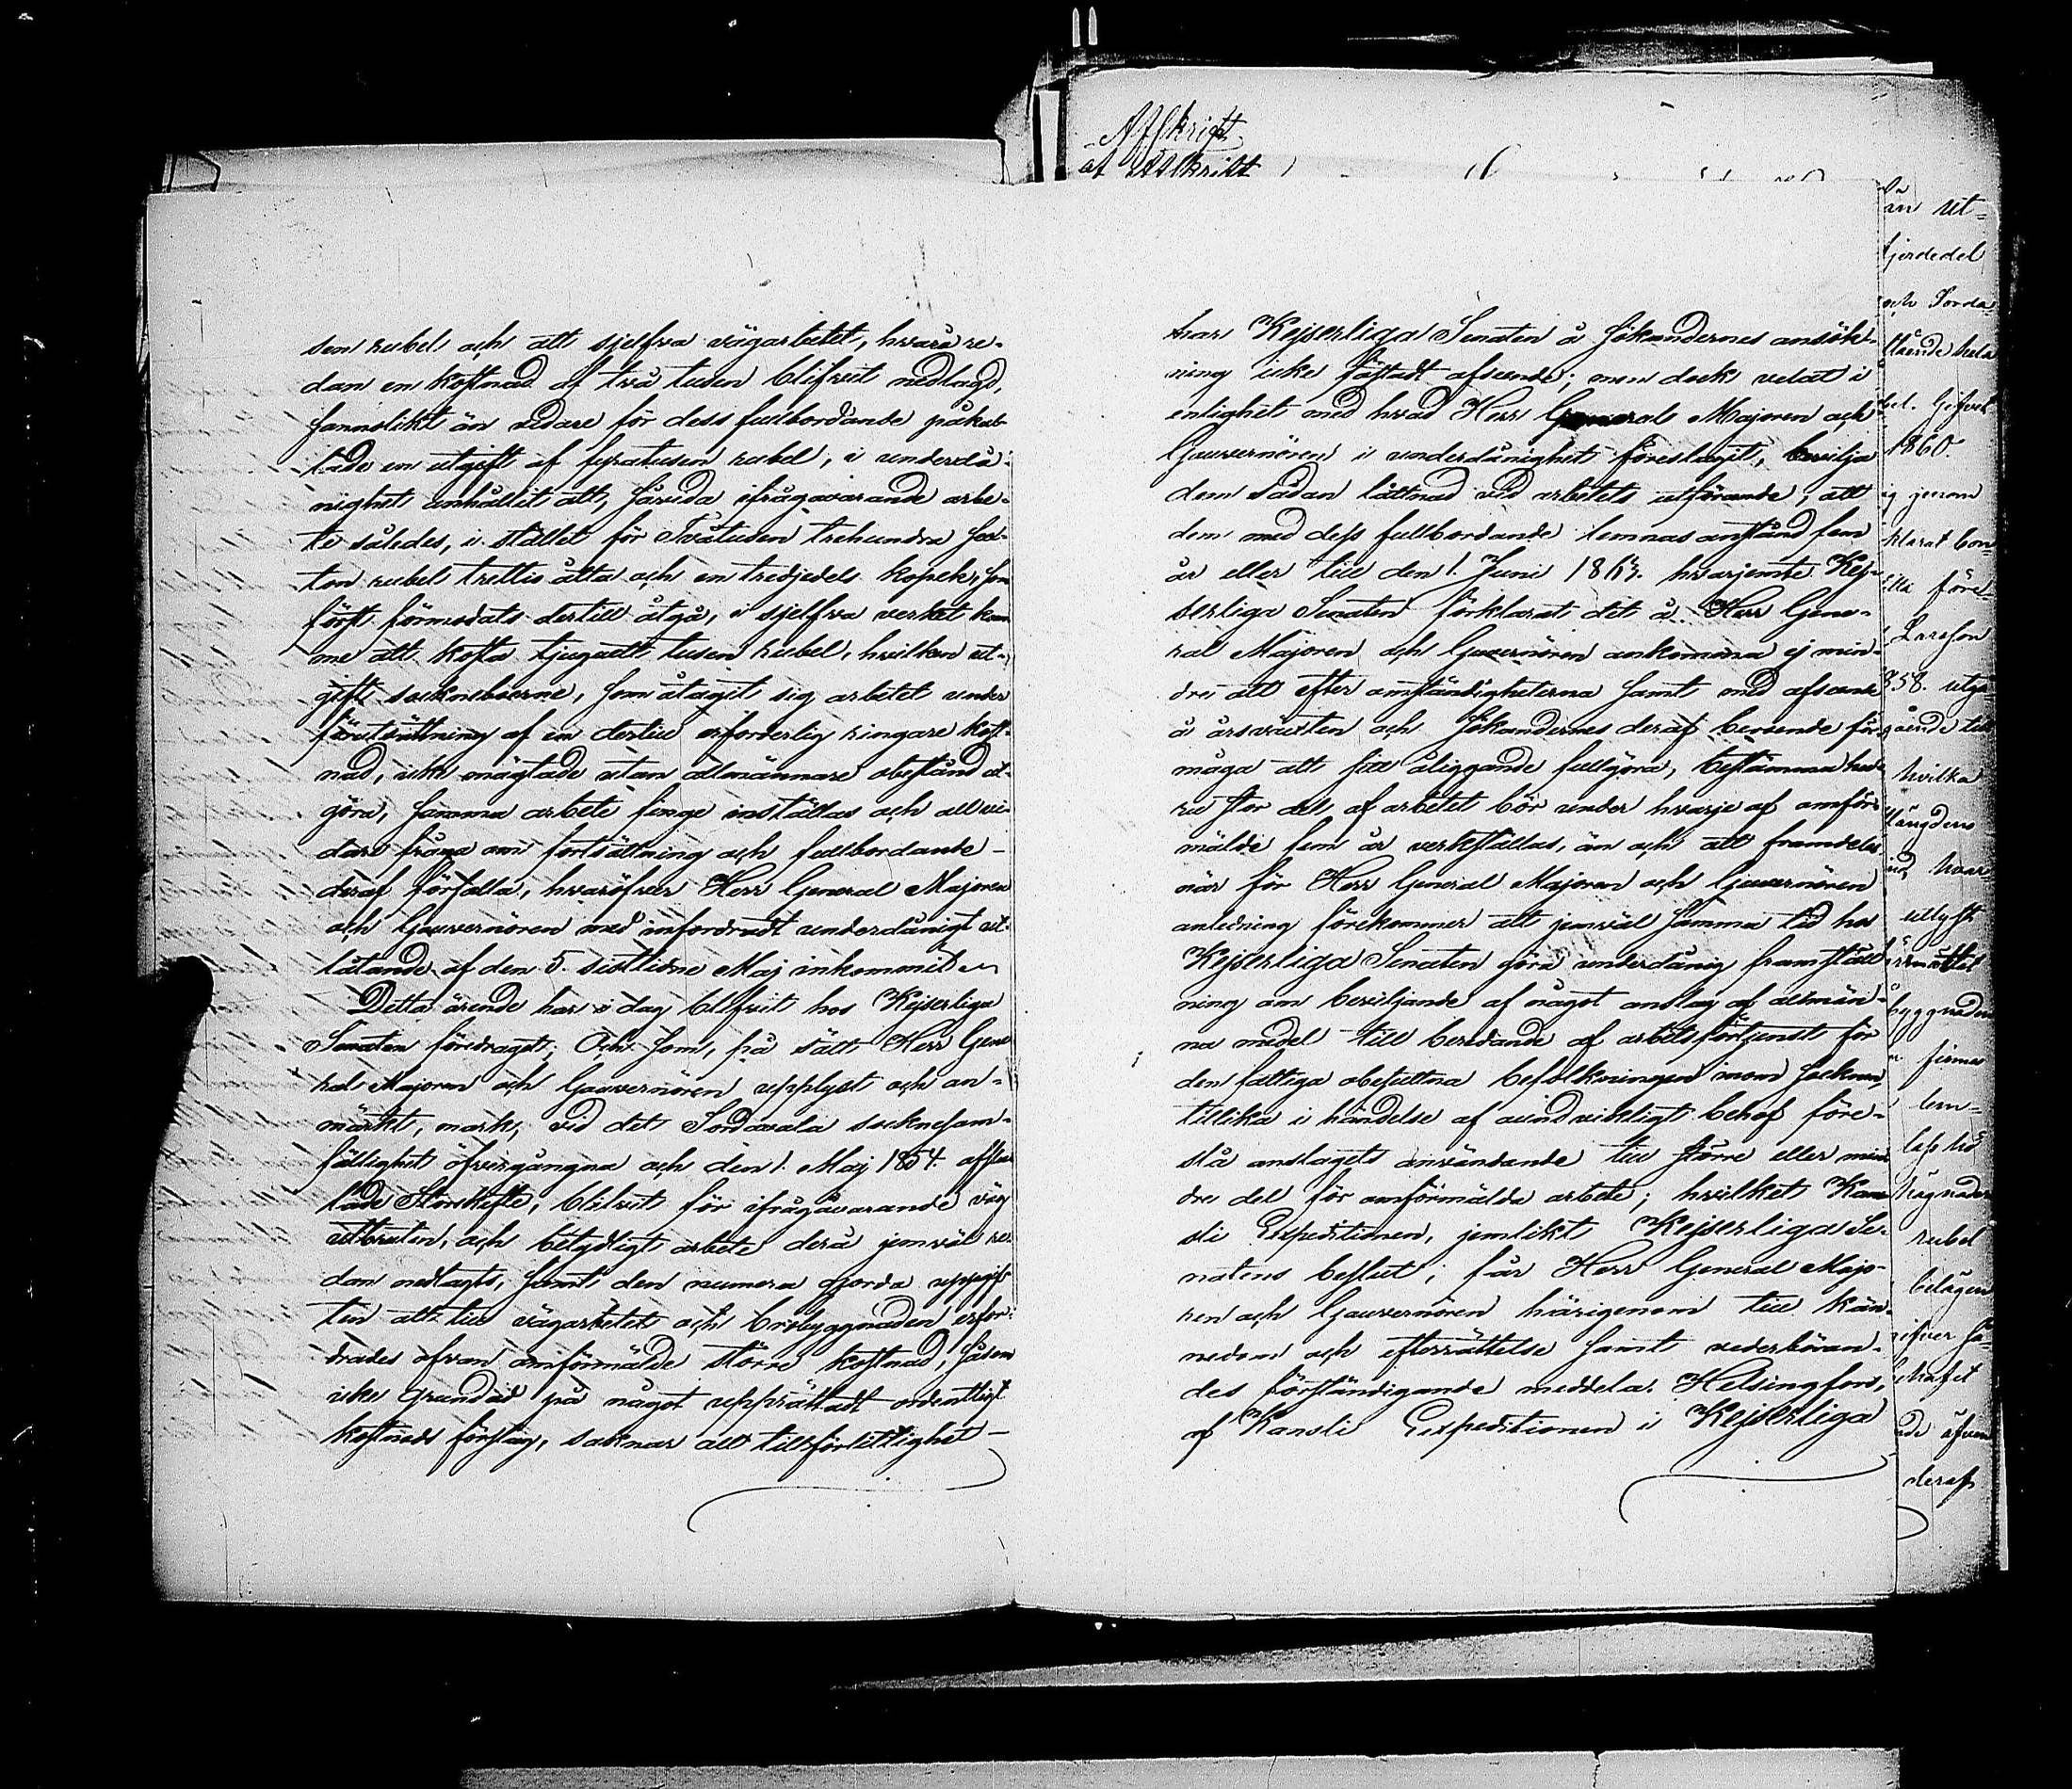 Afskrift
af Afskrift
sen rubel och att sjelfva vägarbetet, hvarå re-
dan en kostnad af två tusen blifvit nedlagd,
sannolikt än vidare för dess fullbordande påkal-
lade en utgift af fyratusen rubel, i underdå-
nighet anhållit att, såvida ifrågavarande arbe-
te således, i stället för Tvåtusen trehundra sex-
ton rubel trettio åtta och en tredjedels kopek, som
först förmodats dertill åtgå, i sjelfva verket kom-
me att kosta tjuguett tusen rubel, hvilken ut-
gift sockneboerne, som åtagit sig arbetet under
förutsättning af en dertill erforderlig ringare kost-
nad, icke mägtade utan allmännare obestånd ut-
göra, samma arbete finge inställas och all vi-
dare fråga om fortsättning och fullbordande
deraf förfalla, hvaröfver Herr General Majoren
och Gouvernören med infordradt underdånigt ut-
låtande af den 5. sistlidne Maj inkommit.
Detta ärende har i dag blifvit hos Kejserliga
Senaten föredraget; Och som, på sätt Herr Gene-
ral Majoren och Gouvernören upplyst och an-
märkt, mark, vid det Sordavala sockneSam-
fällighet öfvergångna och den 1. Maj 1854. afslu-
tade Storskifte, blifvit för ifrågavarande väg
utbruten, och betydligt arbete derå jemväl re-
dan nedlagts, samt den numera gjorda uppgif-
ten att till vägarbetet och brobyggnaden erfor-
drades ofvan omförmälde större kostnad, såsom
icke grundad på något upprättadt ordentligt
kostnads förslag, saknar all tillförlitlighet
har Kejserliga Senaten å Sökandernes ansök-
ning icke fästadt afseende; men dock velat i
enlighet med hvad Herr General Majoren och
Gouvernören i underdånighet föreslagit, bevilja
dem sådan lättnad vid arbetets utförande, att
dem med dess fullbordande lemnas anstånd fem
år eller till den 1. Juni 1863. hvarjemte Kej-
serliga Senaten förklarat det å Herr Gene-
ral Majoren och Gouvernören ankomma ej min-
dre att efter omständigheterna samt med afseende
å årsväxten och Sökandernes deraf beroende för-
måga att sitt åliggande fullgöra, bestämma huru
stor del af arbetet bör under hvarje af omför-
mälde fem år verkställas, än och att framdeles
när för Herr General Majoren och Gouvernören
anledning förekommer att jemväl samma tid hos
Kejserliga Senaten göra underdånig framställ-
ning om beviljande af något anslag af allmän-
na medel till beredande af arbetsförtjenst för
den fattiga obesuttna befolkningen inom socknen,
tillika i händelse af oundvikligt behof före-
slå anslagets användande till större eller min-
dre del för omförmälde arbete; hvilket Kan-
sli Expeditionen, jemlikt Kejserliga Se-
natens beslut, får Herr General Majo-
ren och Gouvernören härigenom till kän-
nedom och efterrättelse samt vederböran-
des förständigande meddela. Helsingfors,
af Kansli Expeditionen i Kejserliga
än ut-
fjerdedel
och Sorda-
stående hela
1860.
ig genom
klarat
föret-
Larsson
858. utgå-
ående
hvilka
längdens
hvar-
utlyst
byggnaden
finnas
lem-
rubel
belägen
behafet
äfven
deraf